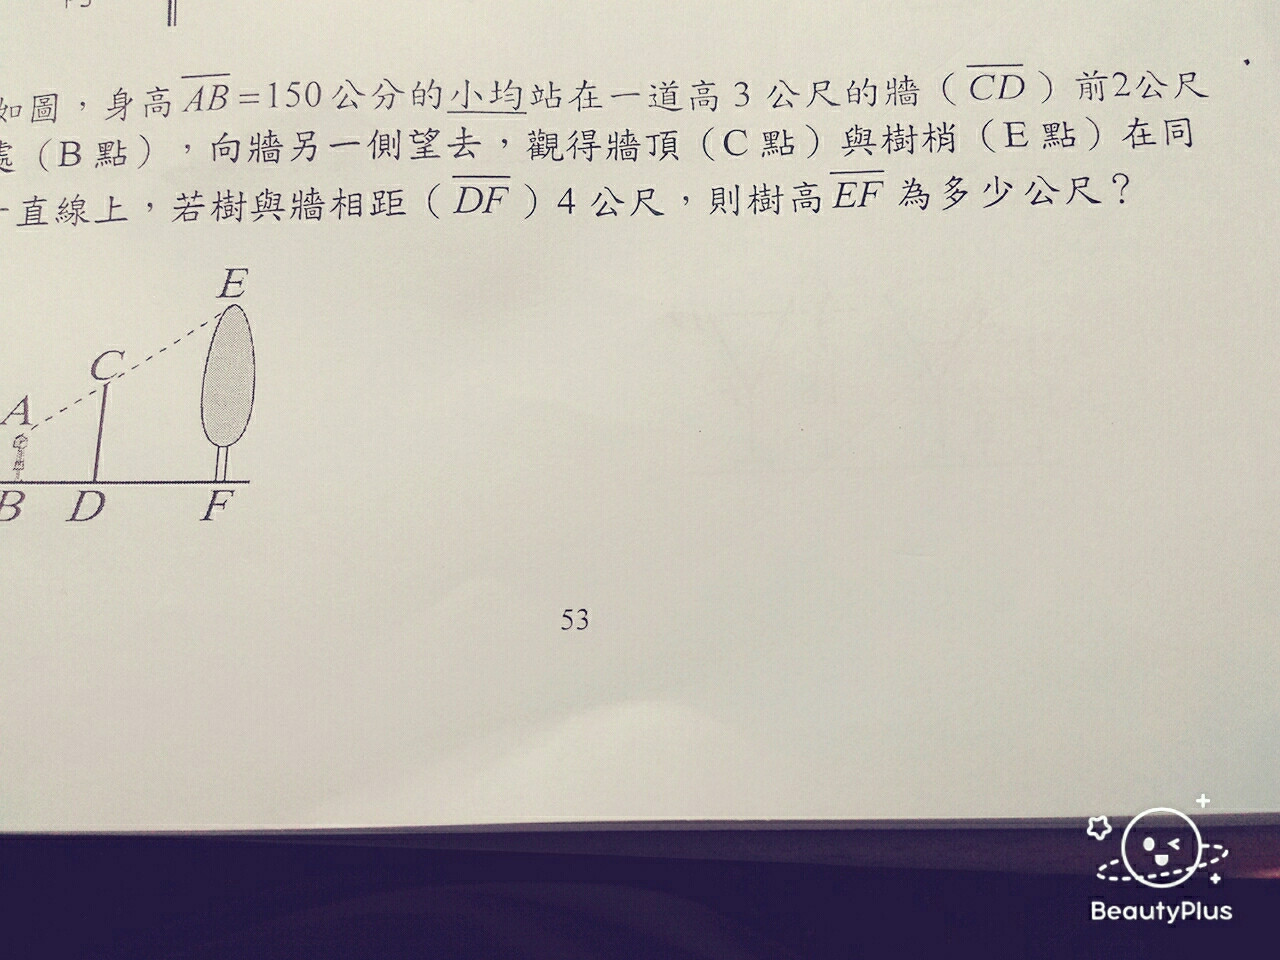 如圖，身高AB=150公分的小均站在一道高3公尺的牆（CD）前2公尺
處（B點），向牆另一側望去，觀得牆頂（C點）與樹梢（E點）在同
一直線上，若樹與牆相距（DF）4公尺，則樹高EF為多少公尺？
E
C
A
B D F
53
BeautyPlus